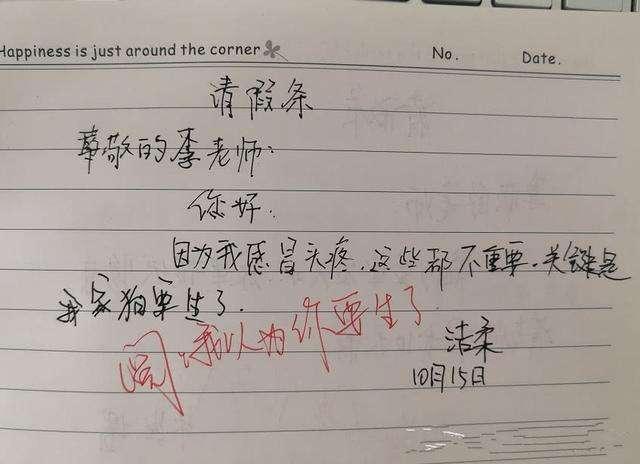 Happiness is just around the corner No. Date.
请假条
尊敬的李老师：
您好.
因为我感冒头疼，这些都不重要.关键是
我家狗要生了.
阅，我以为你要生了
洁柔
10月15日